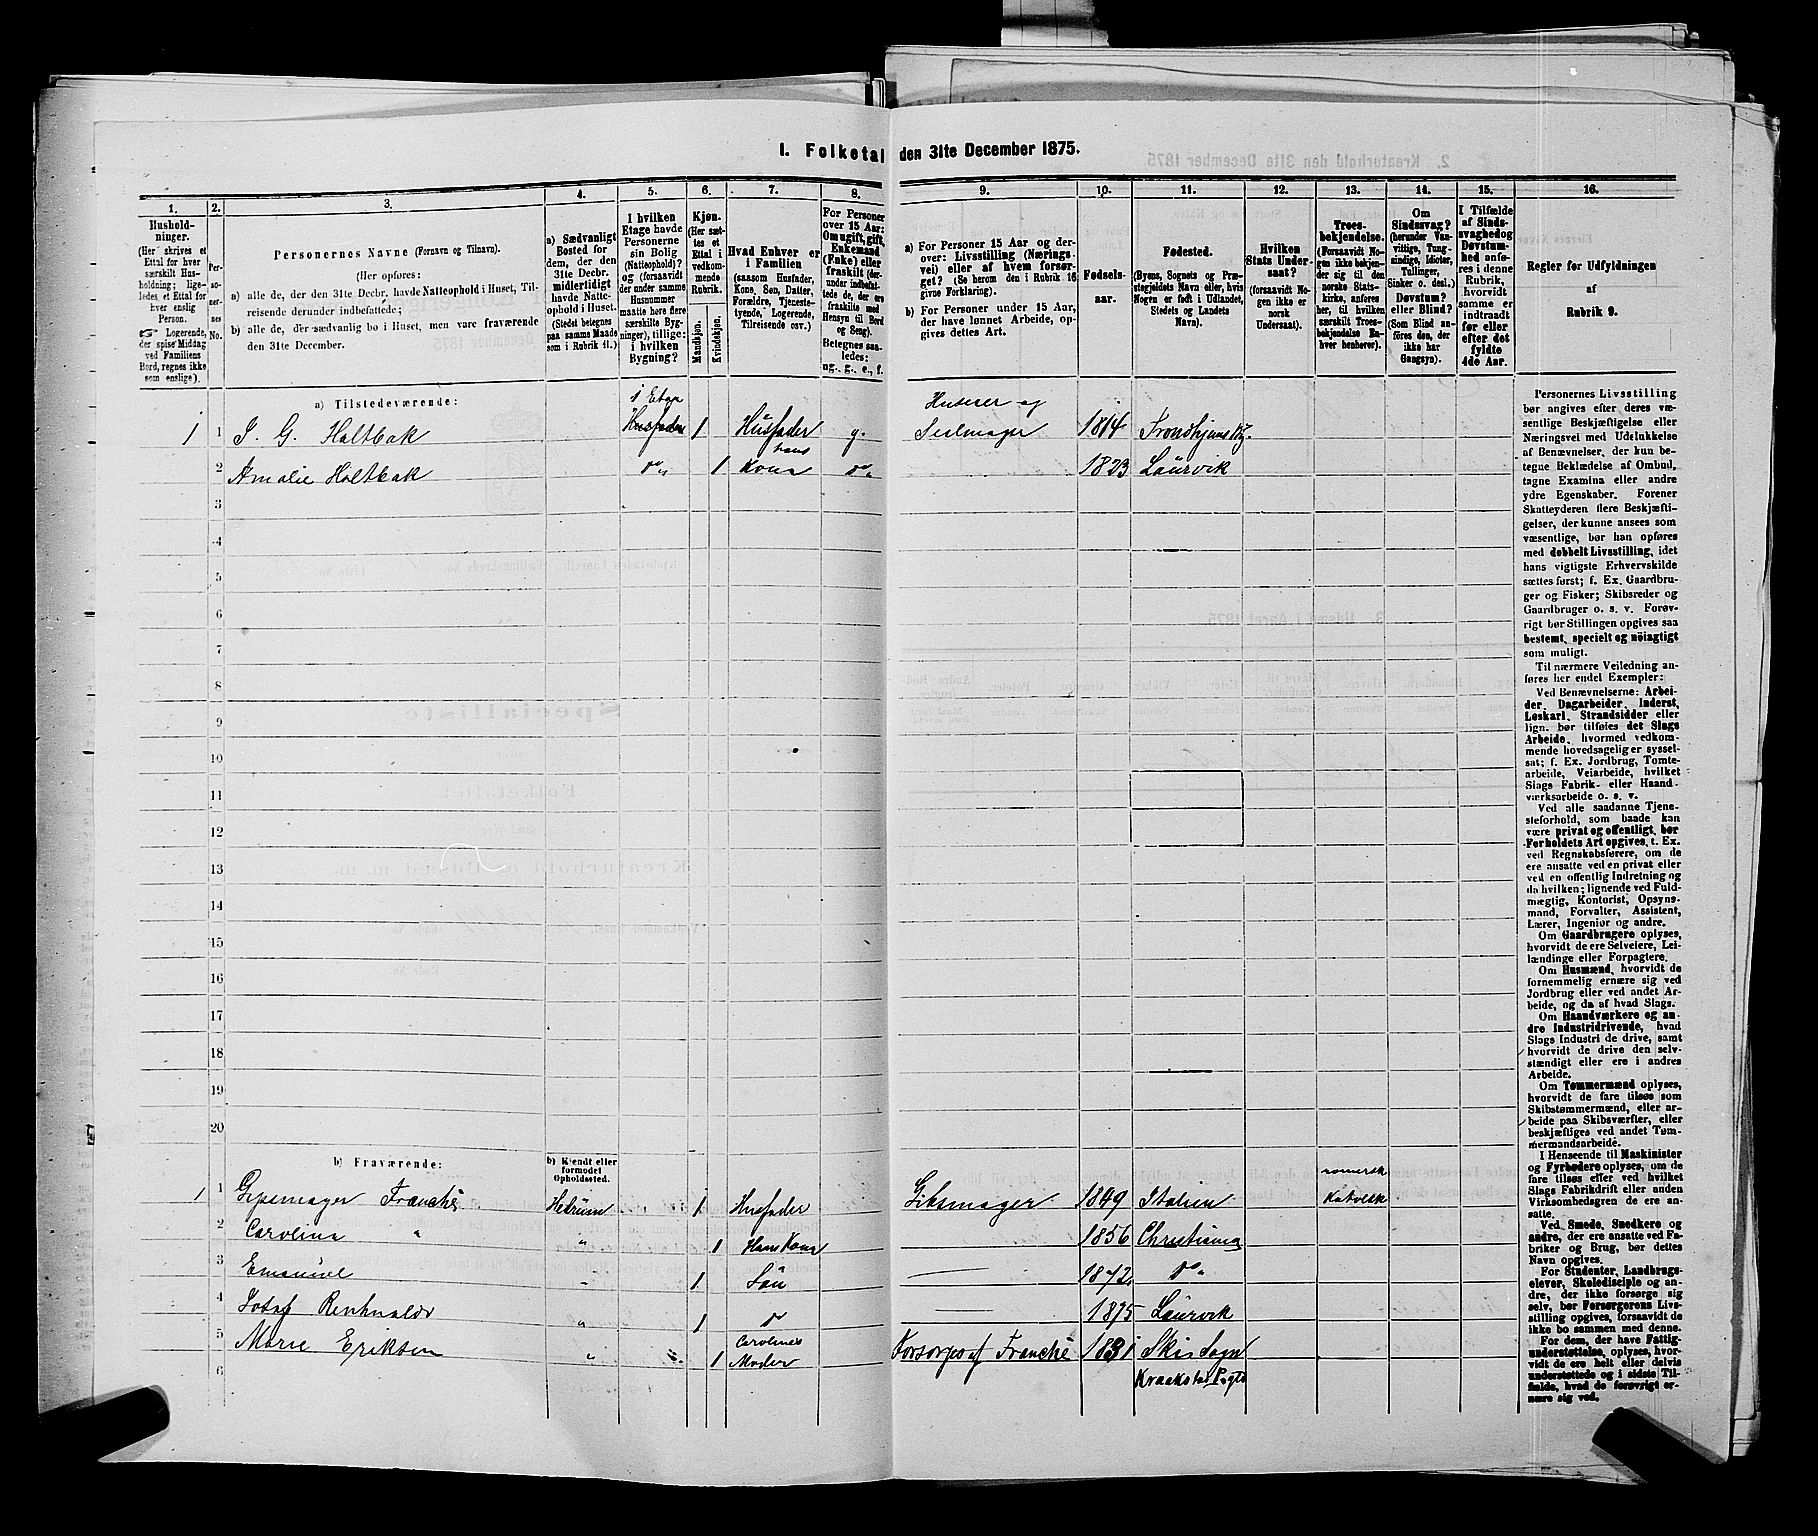 I. Folketal den 31te December 1875.
1. 2. 3. 4. 5. 6. 7. 8. 9. 10. 11. 12. 13. 14. 15. 16.
Hushold-
ninger.
(Her skrives et
Ettal for hver
særskilt Hus-
holdning; lige-
ledes et Ettal for
hver enslig
Person.
☞ Logerende,
der spise Middag
ved Familiens
Bord, regnes ikke
som enslige).
Per-
so-
ner-
nes
No.
Personernes Navne (Fornavn og Tilnavn).
(Her opføres:
a) alle de, der den 31te Decbr. havde Natteophold i Huset, Til-
reisende derunder indbefattede;
b) alle de, der sædvanlig bo i Huset, men vare fraværende
den 31te December.
a) Sædvanligt
Bosted for
dem, der den
31te Decbr.
midlertidigt
havde Natte-
ophold i Huset.
(Stedet betegnes
paa samme Maade
som i Rubrik 11.)
I hvilken
Etage havde
Personerne
sin Bolig
(Natteophold)?
der under samme
Husnummer
maatte høre flere
særskilte Byg-
ninger), tillige:
i hvilken
Bygning?
Kjøn.
(Her sæt-
tes et
Ettal i
vedkom-
mende
Rubrik.
Mandskjøn.
Kvindekjøn.
Hvad Enhver er
i Familien
(saasom Husfader,
Kone, Søn, Datter,
Forældre, Tjeneste-
tyende, Logerende,
Tilreisende osv.)
For Personer
over 15 Aar:
Om ugift, gift,
Enkemand
(Enke) eller
fraskilt (der-
under indbefat-
tede de, der ere
fraskilte med
Hensyn til Bord
og Seng).
Betegnes saa-
ledes:
ug., g., e., f.
a) For Personer 15 Aar og der-
over: Livsstilling (Nærings-
vei) eller af hvem forsør-
get? (Se herom den i Rubrik 16
givne Forklaring).
b) For Personer under 15 Aar,
der have lønnet Arbeide, op-
gives dettes Art.
Fødsels-
aar.
Fødested.
(Byens, Sognets og Præ-
stegjeldets Navn eller, hvis
Nogen er født i Udlandet,
Stedets og Landets
Navn).
Hvilken
Stats Under-
saat?
(forsaavidt No-
gen ikke er
norsk
Undersaat).
Troes-
bekjendelse.
(Forsaavidt No-
gen ikke bekjen-
der sig til den
norske Stats-
kirke, anføres
her, til hvilken
særskilt Troes-
bekjendelse En-
hver henhører).
Om
Sindssvag?
(herunder Van-
vittige, Tung-
sindige, Idioter,
Tullinger,
Sinker o. desl.)
Døvstum?
eller Blind?
(Som Blind an-
føres den, der
ikke har
Gangsyn).
I Tilfælde
af Sinds-
svaghed og
Døvstum-
hed anfø-
res i denne
Rubrik,
hvorvidt
samme er
indtraadt
før eller
efter det
fyldte
4de Aar.
Regler for Udfyldningen
af
Rubrik 9.
a) Tilstedeværende:
1 1 I. G. Holtbak 1 Etage Husfader 1 Husfader g. Huseier og Seilmager 1814 Trondhjems By.
2 Amalie Holtbak do 1 hans Kone do 1823 Laurvik
3
4
5
6
7
8
9
10
11
12
13
14
15
16
17
18
19
20
b) Fraværende:
b) Kjendt eller
formodet
Opholdssted.
1 1 Gipsmager Franché Hedrum 1 Husfader Gibsmager 1849 Italien romersk Katolsk
2 Carolina " " 1 Hans Kone 1856 Christiania
3 Emanuel " 1 Søn 1872 do
4 Renhnaldo " 1 do 1875 Laurvik
5 Marie Eriksen " 1 Carolines Moder Forsørges af Franché 1831 Ski Sogn
6 Kraakstad Pgt
Personernes Livsstilling
bør angives efter deres væ-
sentlige Beskjæftigelse eller
Næringsvei med Udelukkelse
af Benævnelser, der kun be-
tegne Beklædelse af Ombud,
tagne Examina eller andre
ydre Egenskaber. Forener
Skatteyderen flere Beskjæfti-
gelser, der kunne ansees som
væsentlige, bør han opføres
med dobbelt Livsstilling, idet
hans vigtigste Erhvervskilde
sættes først; f. Ex. Gaardbru-
ger og Fisker; Skibsreder og
Gaardbruger o. s. v. Forøv-
rigt bør Stillingen opgives saa
bestemt, specielt og nøiagtigt
som muligt.
Til nærmere Veiledning an-
føres her endel Exempler:
Ved Benævnelserne: Arbei-
der, Dagarbeider, Inderst,
Løskarl, Strandsidder eller
lign. bør tilføies det Slags
Arbeide, hvormed vedkom-
mende hovedsagelig er syssel-
sat; f. Ex. Jordbrug, Tomte-
arbeide, Veiarbeide, hvilket
Slags Fabrik- eller Haand-
værksarbeide o. s. v.
Ved alle saadanne Tjene-
steforhold, som baade kan
være privat og offentligt, bør
Forholdets Art opgives, t. Ex.
ved Regnskabsførere, om de
ere ansatte ved en privat eller
ved en offentlig Indretning og
da hvilken; lignende ved Fuld-
mægtig, Kontorist, Opsyns-
mand, Forvalter, Assistent,
Lærer, Ingeniør og andre.
Om Gaardbrugere oplyses,
hvorvidt de ere Selveiere, Lei-
lændinge eller Forpagtere.
Om Husmænd, hvorvidt de
fornemmelig ernære sig ved
Jordbrug eller ved andet Ar-
beide, og da af hvad Slags.
Om Haandværkere og an-
dre Industridrivende, hvad
Slags Industri de drive, samt
hvorvidt de drive den selv-
stændigt eller ere i andres
Arbeide.
Om Tømmermænd oplyses,
hvorvidt de fare tilsøs som
Skibstømmermænd, eller ar-
beide paa Skibsværfter, eller
beskjæftiges ved andet Tøm-
mermandsarbeide.
I Henseende til Maskinister
og Fyrbødere oplyses, om de
fare tilsøs eller ved hvilket
Slags Fabrikdrift eller anden
Virksomhedsgren de ere an-
satte.
Ved Smede, Snedkere og
andre, der ere ansatte ved Fa-
briker og Brug, bør dettes
Navn opgives.
For Studenter, Landbrugs-
elever, Skoledisciple og an-
dre, der ikke forsørge sig
selv, bør Forsørgerens Livs-
stilling opgives, forsaavidt de
ikke bo sammen med denne.
For dem, der have Fattig-
understøttelse, oplyses, hvor-
vidt de ere helt eller delvis
understøttede og i sidste Til-
fælde, hvad de forøvrigt er-
nære sig ved.